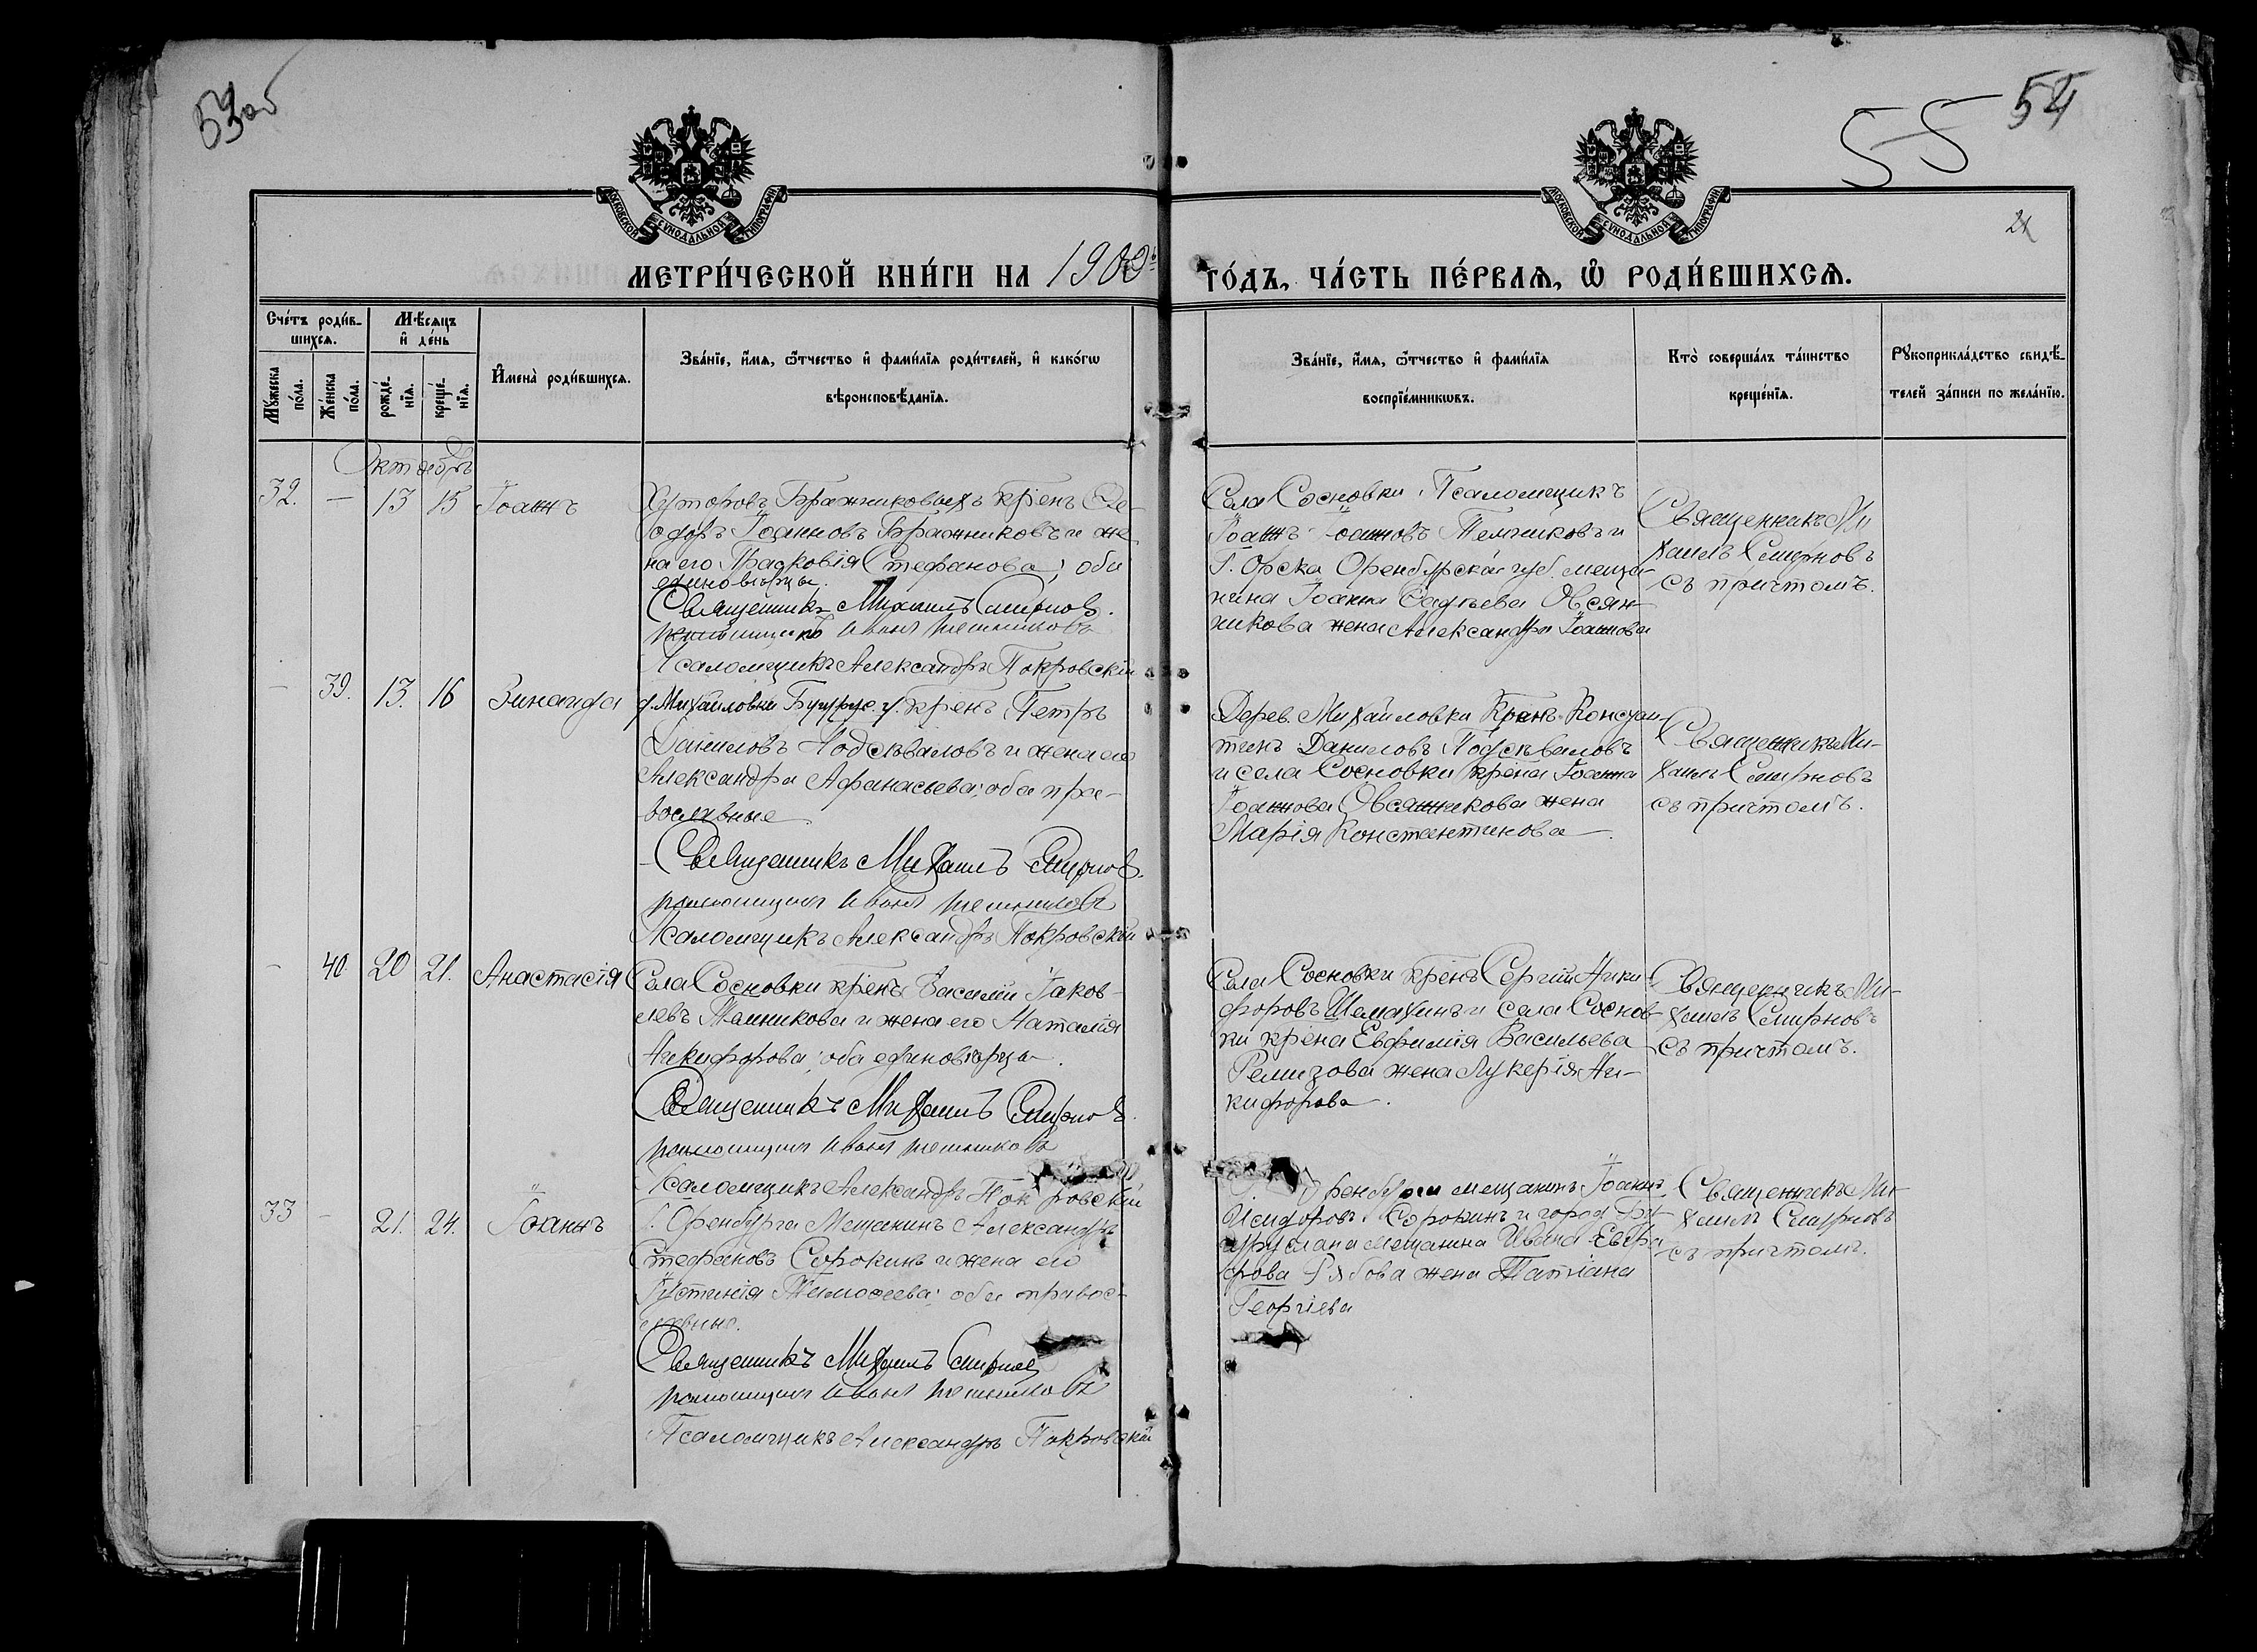 53об
55 54
МОСКОВСКОЙ СѴНОДАЛЬНОЙ ТИПОГРАФІИ
МОСКОВСКОЙ СѴНОДАЛЬНОЙ ТИПОГРАФІИ
21
МЕТРИ́ЧЕСКОЙ КНИ́ГИ НА 1909й
ГО́ДЪ, ЧА́СТЬ ПЕ́РВАѦ, Ѡ҆ РОДИ́ВШИХСѦ.
Сче́тъ роди́в-
шихсѧ.
Мѣ́сѧцъ
и҆ де́нь
Мꙋ́жеска по́ла.
Же́нска по́ла.
рожде́-нїѧ.
креще́-нїѧ.
И҆мена̀ роди́вшихсѧ.
Зва́нїе, и҆́мѧ, ѻ҆́тчество и҆ фами́лїѧ роди́телей, и҆ како́гѡ
вѣроисповѣ́данїѧ.
Зва́нїе, и҆́мѧ, ѻ҆́тчество и҆ фами́лїѧ
воспрїе́мникѡвъ.
Кто̀ соверша́лъ та́инство
креще́нїѧ.
Рꙋкоприкла́дство свидѣ́-
телей за́писи по жела́нїю.
Октябрь
32. — 13 15 Іоаннъ
Хуторовъ Бражниковыхъ кр–енъ Ѳе-
одоръ Іоанновъ Бражниковъ и же
на его Парасковія Стефанова; оба
единовѣрцы.
Священникъ Михаилъ Смирновъ.
Псаломщикъ Александръ Покровскій
Села Сосновки Псаломщикъ
Іоаннъ Іоанновъ Темниковъ и
Г. Орска Оренбурской губ. меща-
нина Іоанна Овсян-
никова жена Александра Іоаннова
Священникъ Ми
хаилъ Смирновъ
съ причтомъ.
— 39. 13. 16 Зинаида
д. Михайловки Бузулук. у. кр–енъ Петръ
Даниловъ Подсѣваловъ и жена его
Александра Афанасьева; оба пра-
вославные
Священникъ Михаилъ Смирновъ.
Псаломщикъ Александръ Покровскій
Дерев. Михайловки Кр–енъ Констан-
тинъ Даниловъ Подсѣваловъ
и села Сосновки кр–ена Іоанна
Іоаннова Овсянникова жена
Марія Константинова.
Священникъ Ми-
хаилъ Смирновъ
съ причтомъ.
— 40 20 21. Анастасія
Села Сосновки кр–енъ Василій Іаков-
левъ Темникова и жена его Наталія
Никифорова; оба единовѣрцы.
Священникъ Михаилъ Смирновъ.
Псаломщикъ Александръ Покровскій
Села Сосновки кр–енъ Сергій Ники-
форовъ Шемахинъ и села Соснов-
ки кр–ена Евфимія Васильева
Ремизова жена Лукерія Ни-
кифорова.
Священникъ Ми-
хаилъ Смирновъ
съ причтомъ.
33 — 21. 24. Іоаннъ
Г. Оренбурга Мещанинъ Александръ
Стефановъ Сорокинъ и жена его
Іустинія Тимоѳеева; оба правос-
лавные.
Священникъ Михаилъ Смирновъ
Псаломщикъ Александръ Покровскій
Оренбурга мещанинъ Іоаннъ
Исидоровъ Сорокинъ и город. Бу-
гуруслана мещанина Ивана
Рябова жена Татіана
Георгіева
Священникъ Ми-
хаилъ Смирновъ
съ причтомъ.